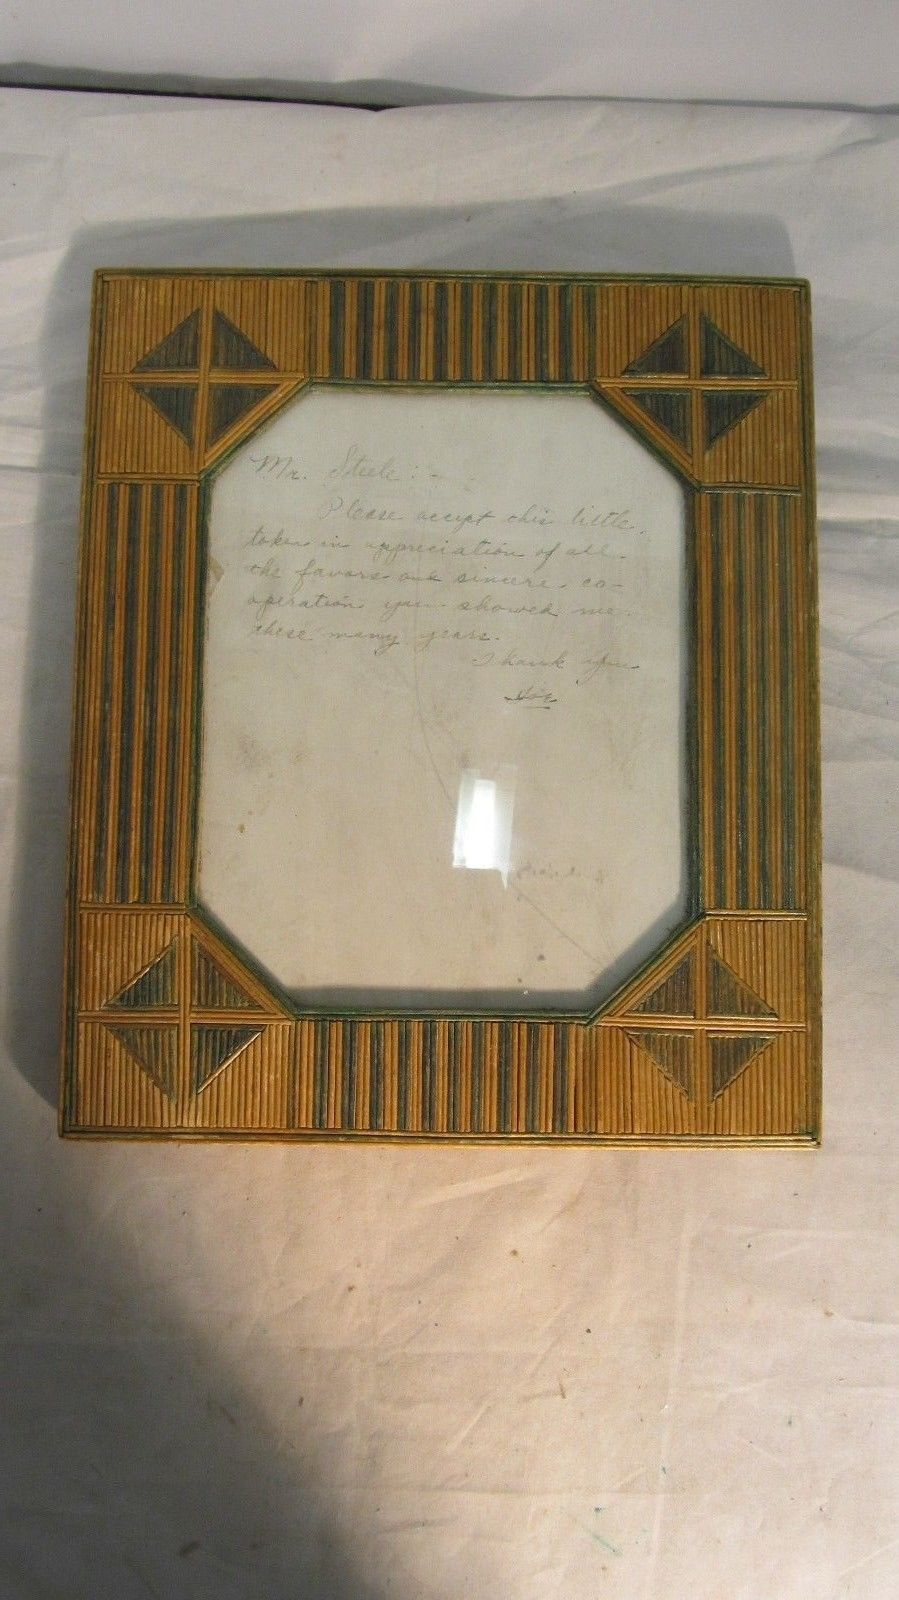 Mr. Steele : -
Please accept this little
token in appreciation of all
the favors and sincere co-
operation you showed me
these many years.
Thank you
Joe